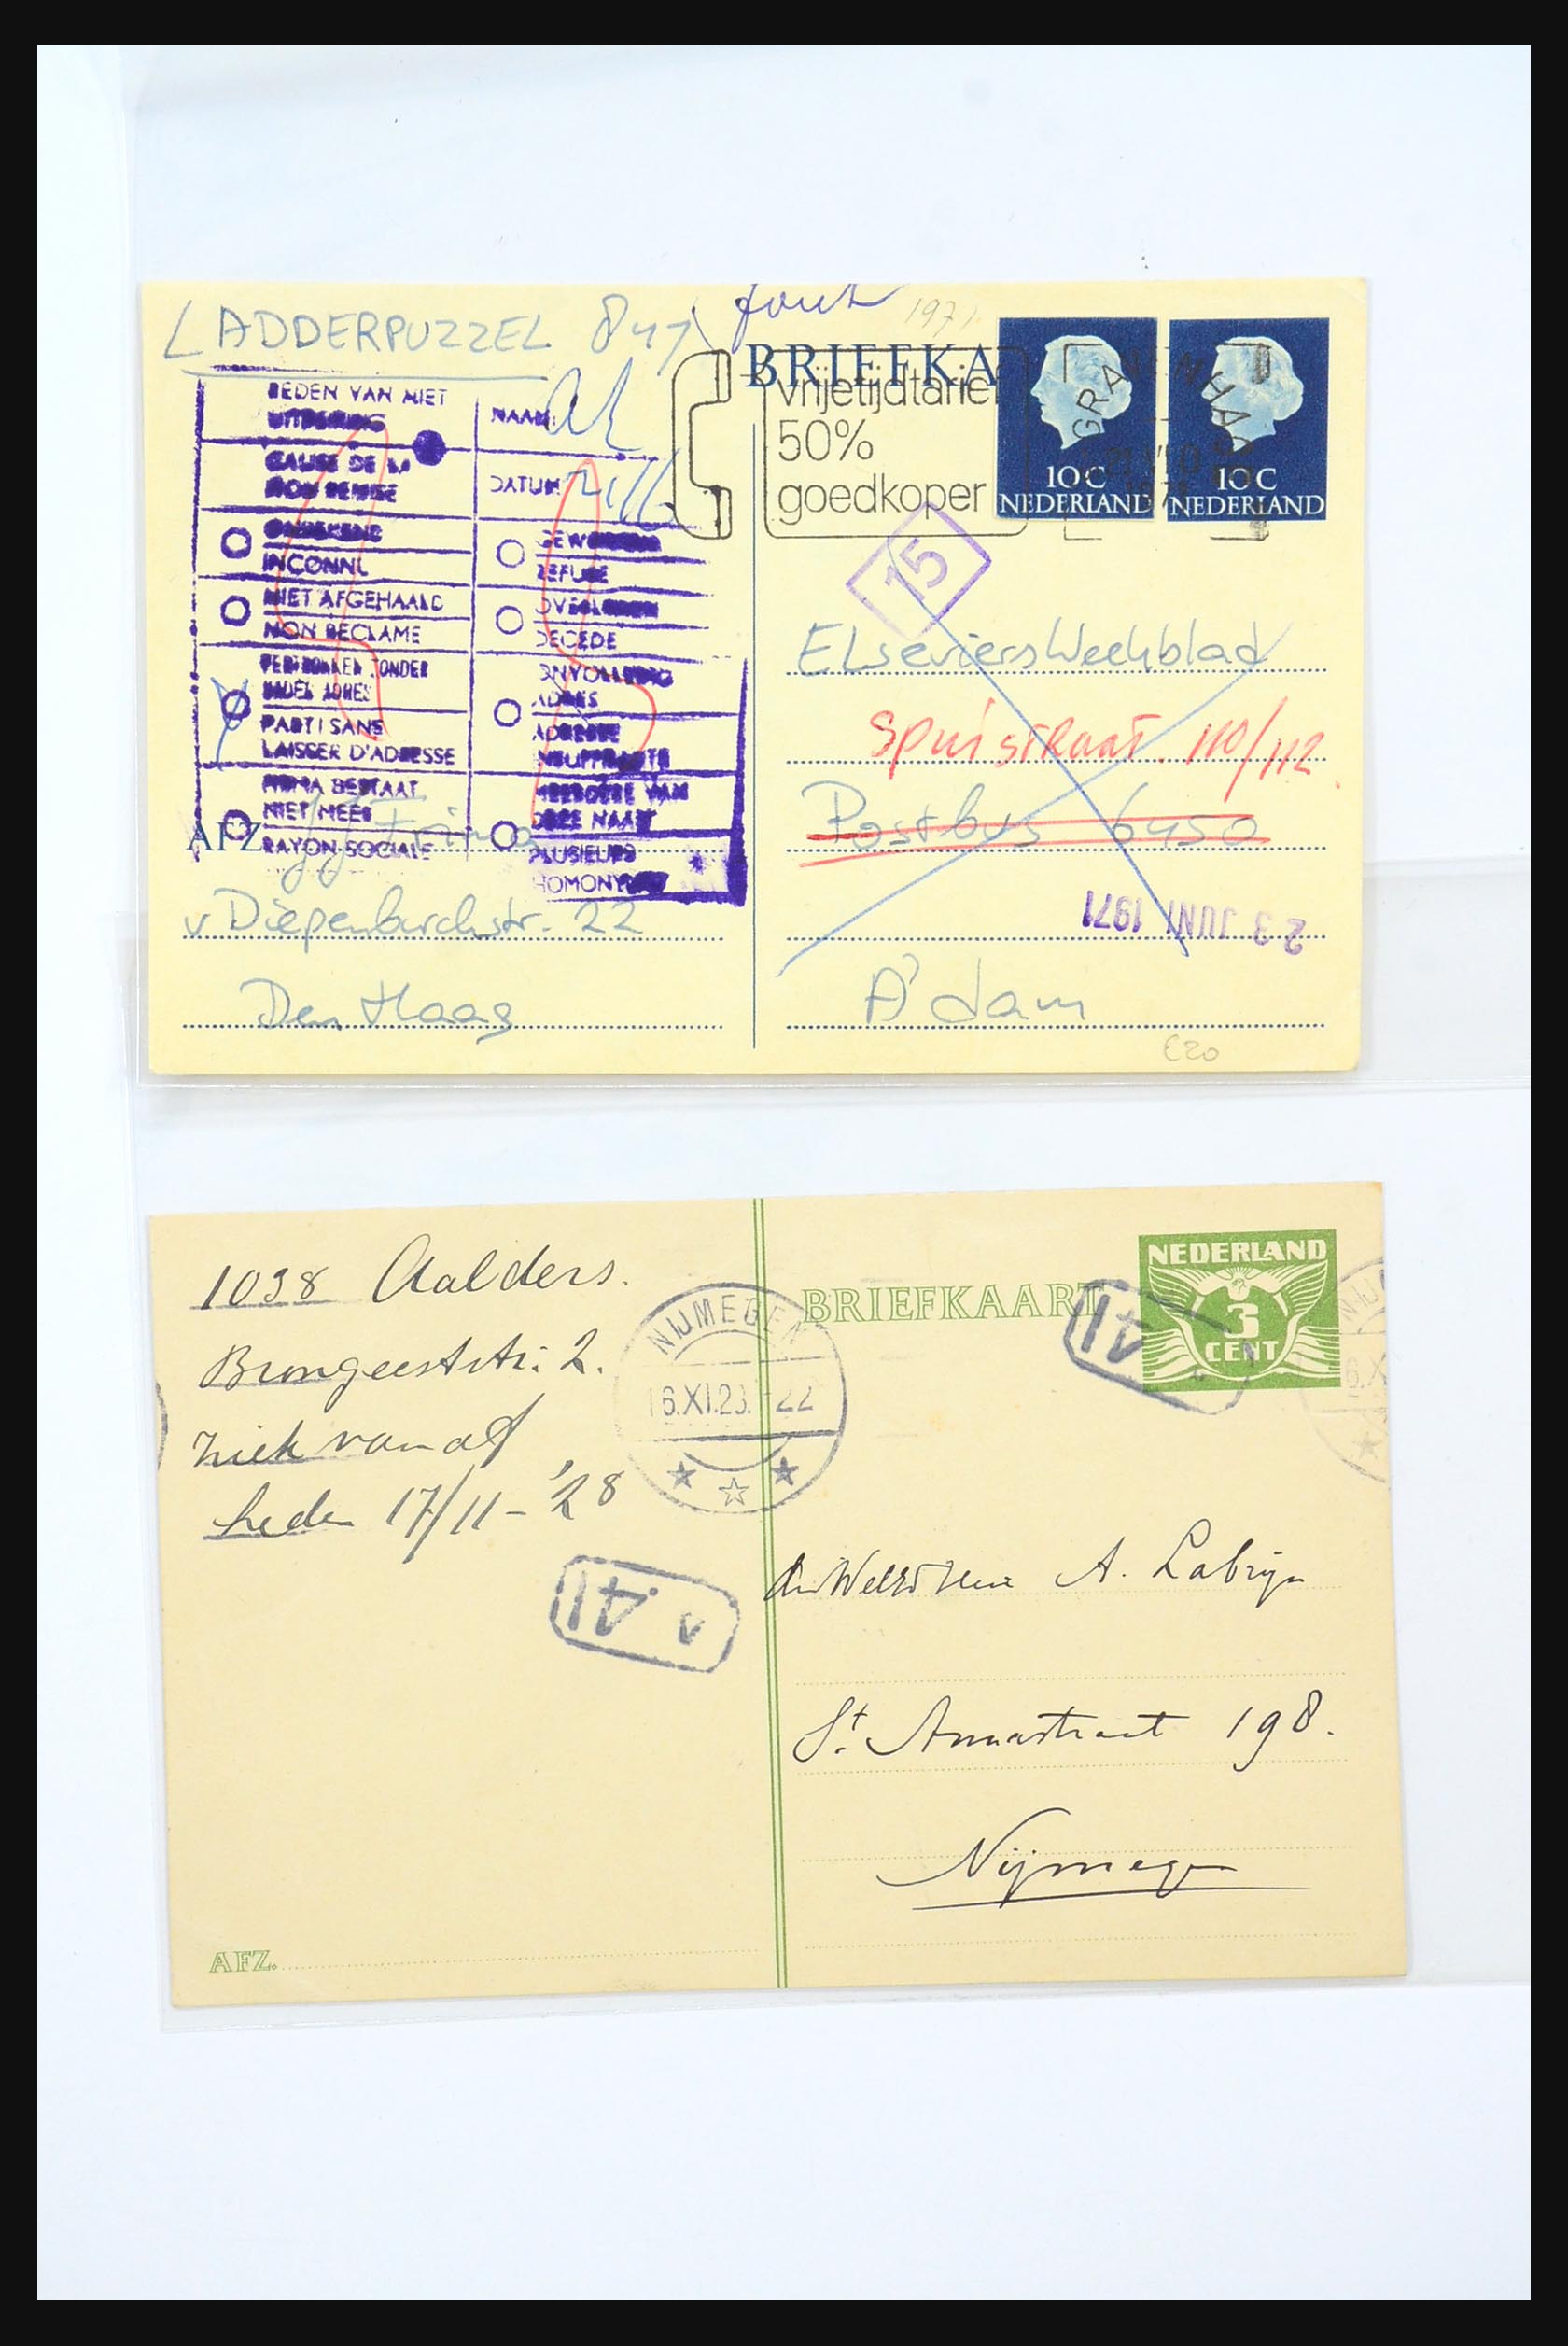 LADDERPUZZEL 841
fout
1971
BRIEFKA
REDEN VAN NIET
UITREIKING
NAAM:
CAUSE DE LA
NON REMISE
DATUM
ONBEKEND
INCONNU
GEWEIGERD
REFUSE
NIET AFGEHAALD
NON RECLAME
OVERLEDEN
DECEDE
VERTROKKEN ZONDER
ADRES
PARTI SANS
LAISSER D'ADRESSE
ONVOLLEDIG
ADRES
ADRESSE
INSUFFISANTE
FIRMA BESTAAT
NIET MEER
RAYON SOCIALE
MEERDERE VAN
DEZE NAAM
PLUSIEURS
HOMONYMES
AFZ.
v Diepenburchstr. 22
Den Haag
vrijetijdtarief
50%
goedkoper
GRAVENHAGE
10 C
NEDERLAND
10 C
NEDERLAND
15
Elseviers Weekblad
Spuistraat 110/112
Postbus 6450
23 JUNI 1971
A'dam
€20
1038 Aalders.
Brongeeststr: 2.
Ziek vanaf
heden 17/11-'28
NIJMEGEN
16.XI.28. -22
BRIEFKAART
NEDERLAND
3
CENT
v A1
A1
A. Labrijn
St. Annastraat 198.
Nijmegen
AFZ.